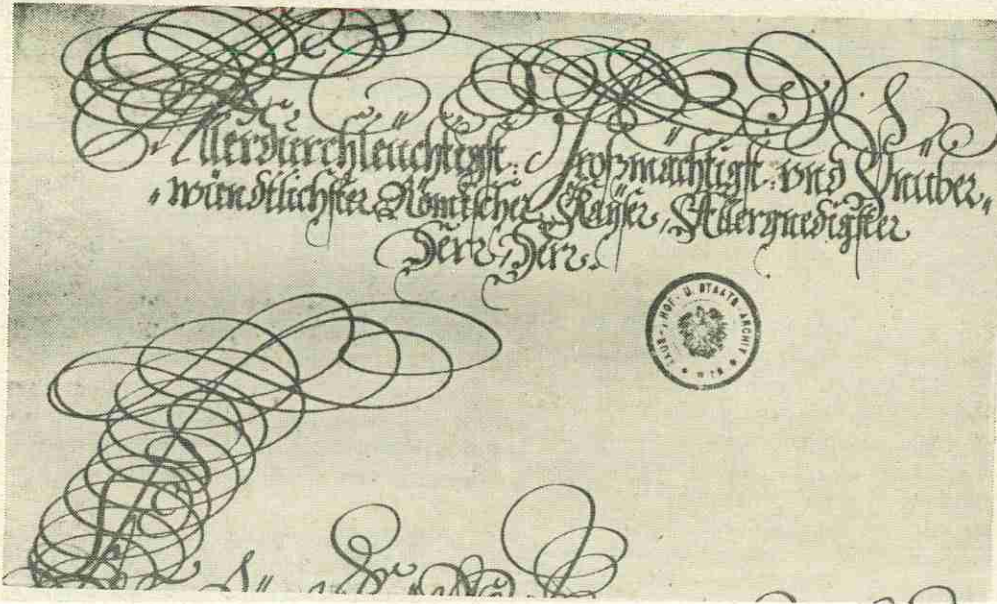 Allerdurchleüchtigst: Großmächtigst: vnd Vnüber„
„wündtlichster Römischer Kayser, Allergnedigster
Herr, Herr.
HAUS-, HOF- U. STAATS-ARCHIV
WIEN